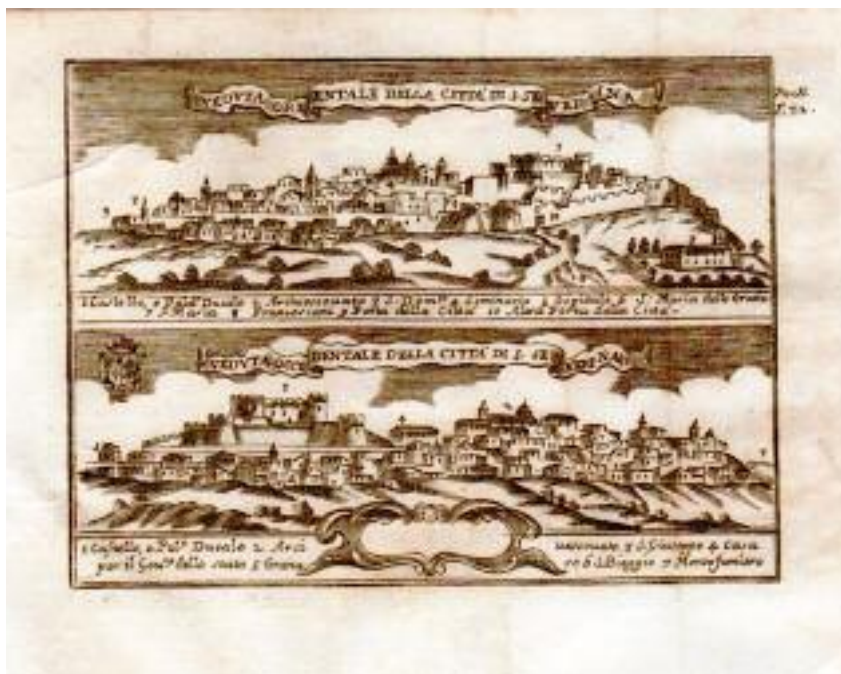 VEDUTA ORIENTALE DELLA CITTÀ DI S. SEVERINA
1 Castello, e Pal.º Ducale 2 Arcivescovato 3 S. Dom.co 4 Seminario 5 Ospidale 6 S. Maria delle Grazie
7 S. Maria 8 9 Porta della Città 10 Altra Porta della Città
VEDUTA OCCIDENTALE DELLA CITTÀ DI S. SEVERINA
1 Castello, e Pal.º Ducale 2 Arcivescovato 3 S. Giuseppe 4 Casa
per il Gov.re dello stato 5 6 S. Biaggio 7